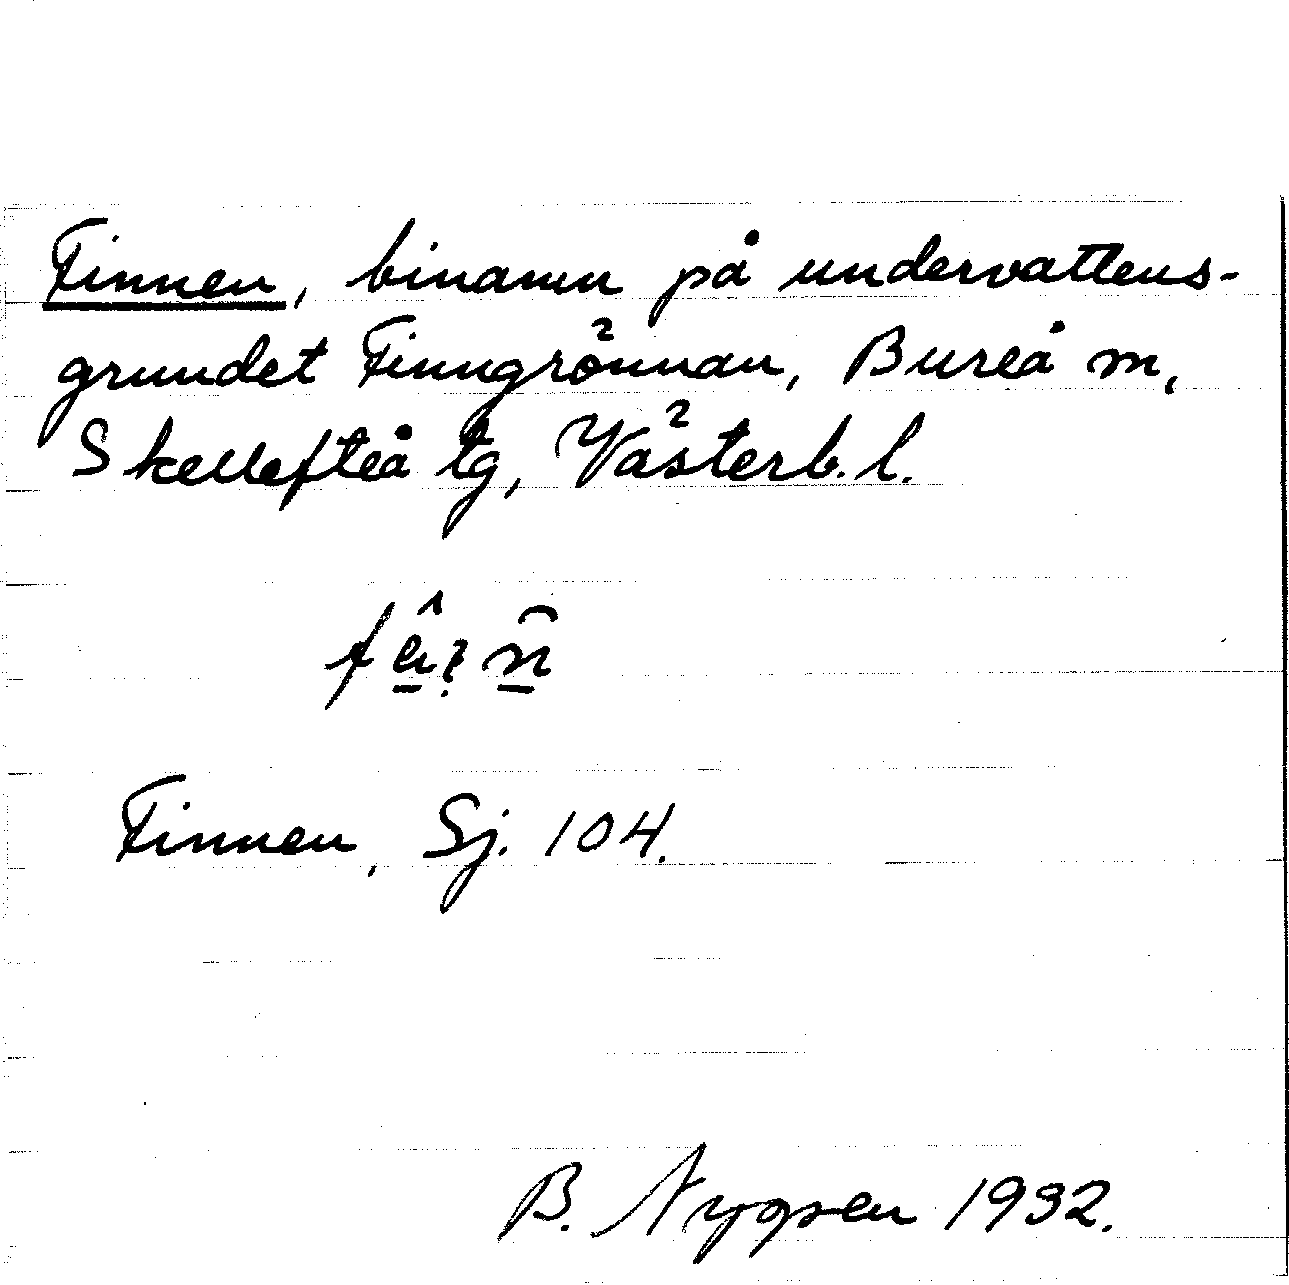 Finnen, binamn på undervattens-
grundet Finngrönnan, Bureå m,
Skellefteå tg, Västerb. l.
Finnen, Sj. 104.
B. 1932.